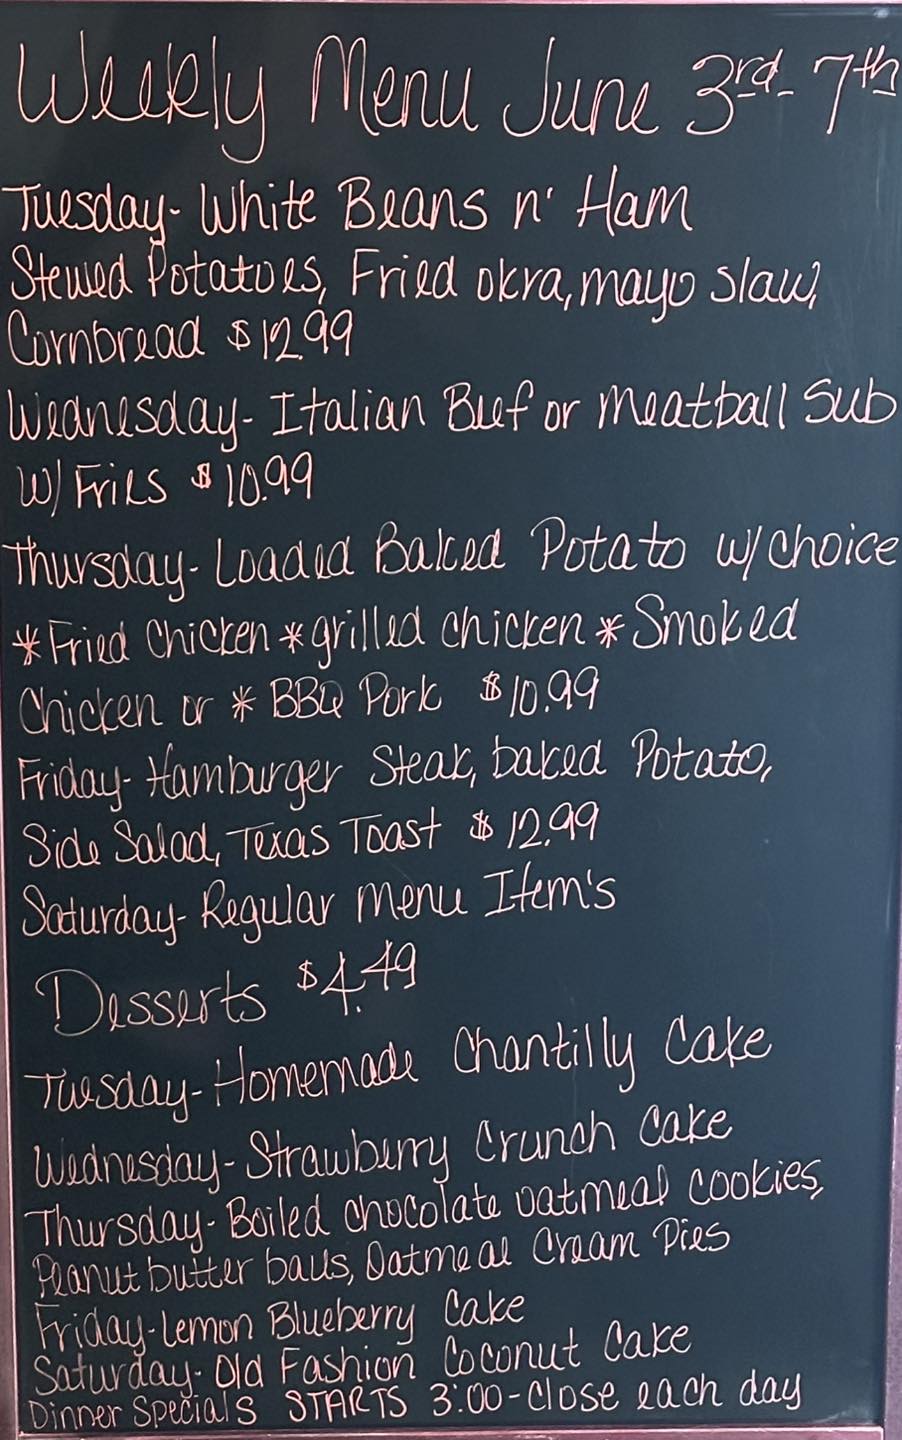 Weekly Menu June 3rd- 7th
Tuesday- White Beans n' Ham
Stewed Potatoes, Fried okra, mayo slaw,
Cornbread $12.99
Wednesday- Italian Beef or Meatball Sub
W/ Fries $10.99
Thursday- Loaded Baked Potato w/ choice
*Fried Chicken *grilled chicken *Smoked
Chicken or * BBQ Pork $10.99
Friday- Hamburger Steak, baked Potato,
Side Salad, Texas Toast $12.99
Saturday- Regular menu Item's
Desserts $4.49
Tuesday- Homemade Chantilly Cake
Wednesday- Strawberry Crunch Cake
Thursday- Boiled chocolate oatmeal cookies,
Peanut butter balls, Oatmeal Cream Pies
Friday- Lemon Blueberry Cake
Saturday- Old Fashion Coconut Cake
Dinner Specials STARTS 3:00-Close each day